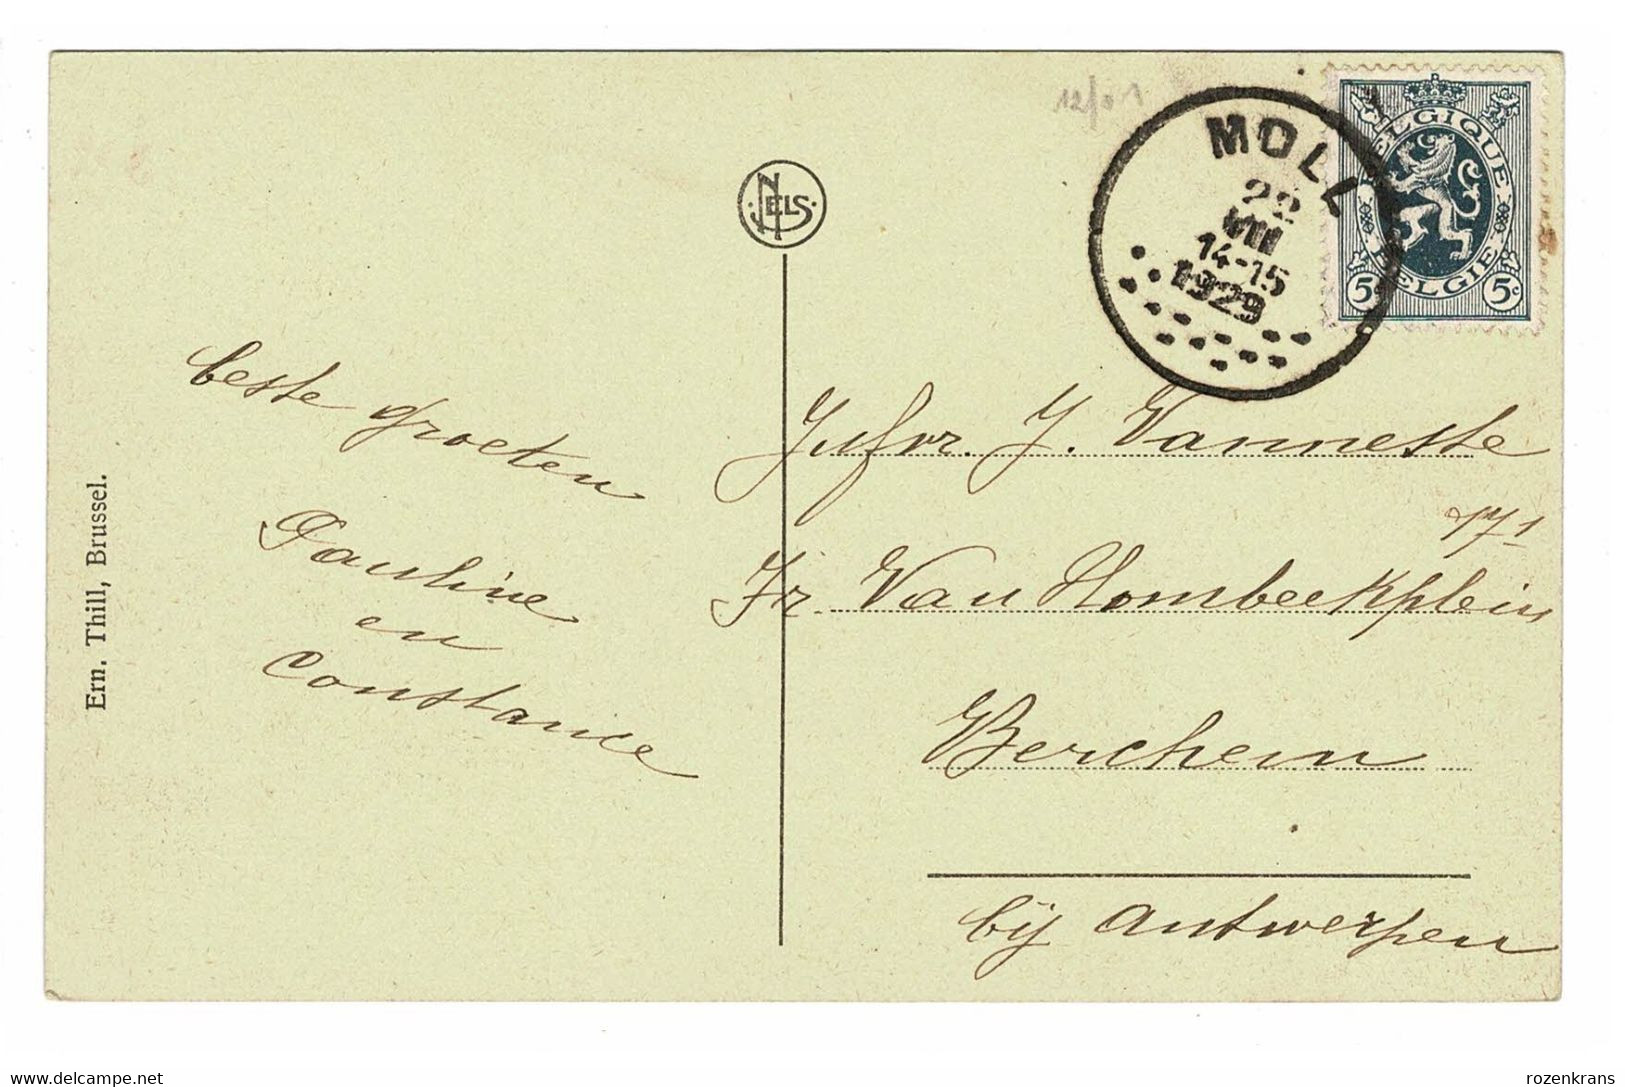 12/01
MOLL
22
VIII
14-15
1929
BELGIQUE
BELGIE
5c
5c
NELS
beste groeten
Pauline
en
Constance
Ern. Thill, Brussel.
Jufvr. J. Vanneste
171
Fr. Van Hombeekplein
Berchem
bij Antwerpen
www.delcampe.net
rozenkrans